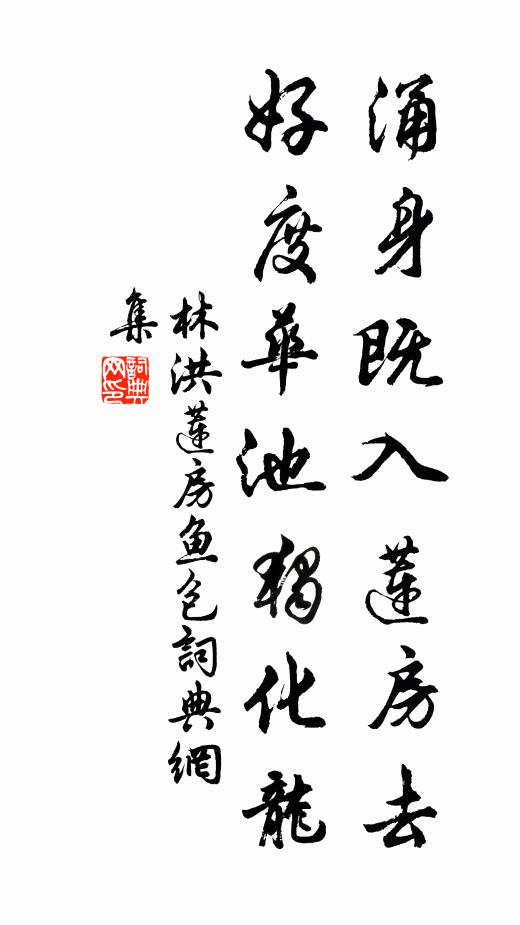 涌身既入蓮房去
好度華池獨化龍
林洪蓮房鱼包詞典網
集
詞典
网印